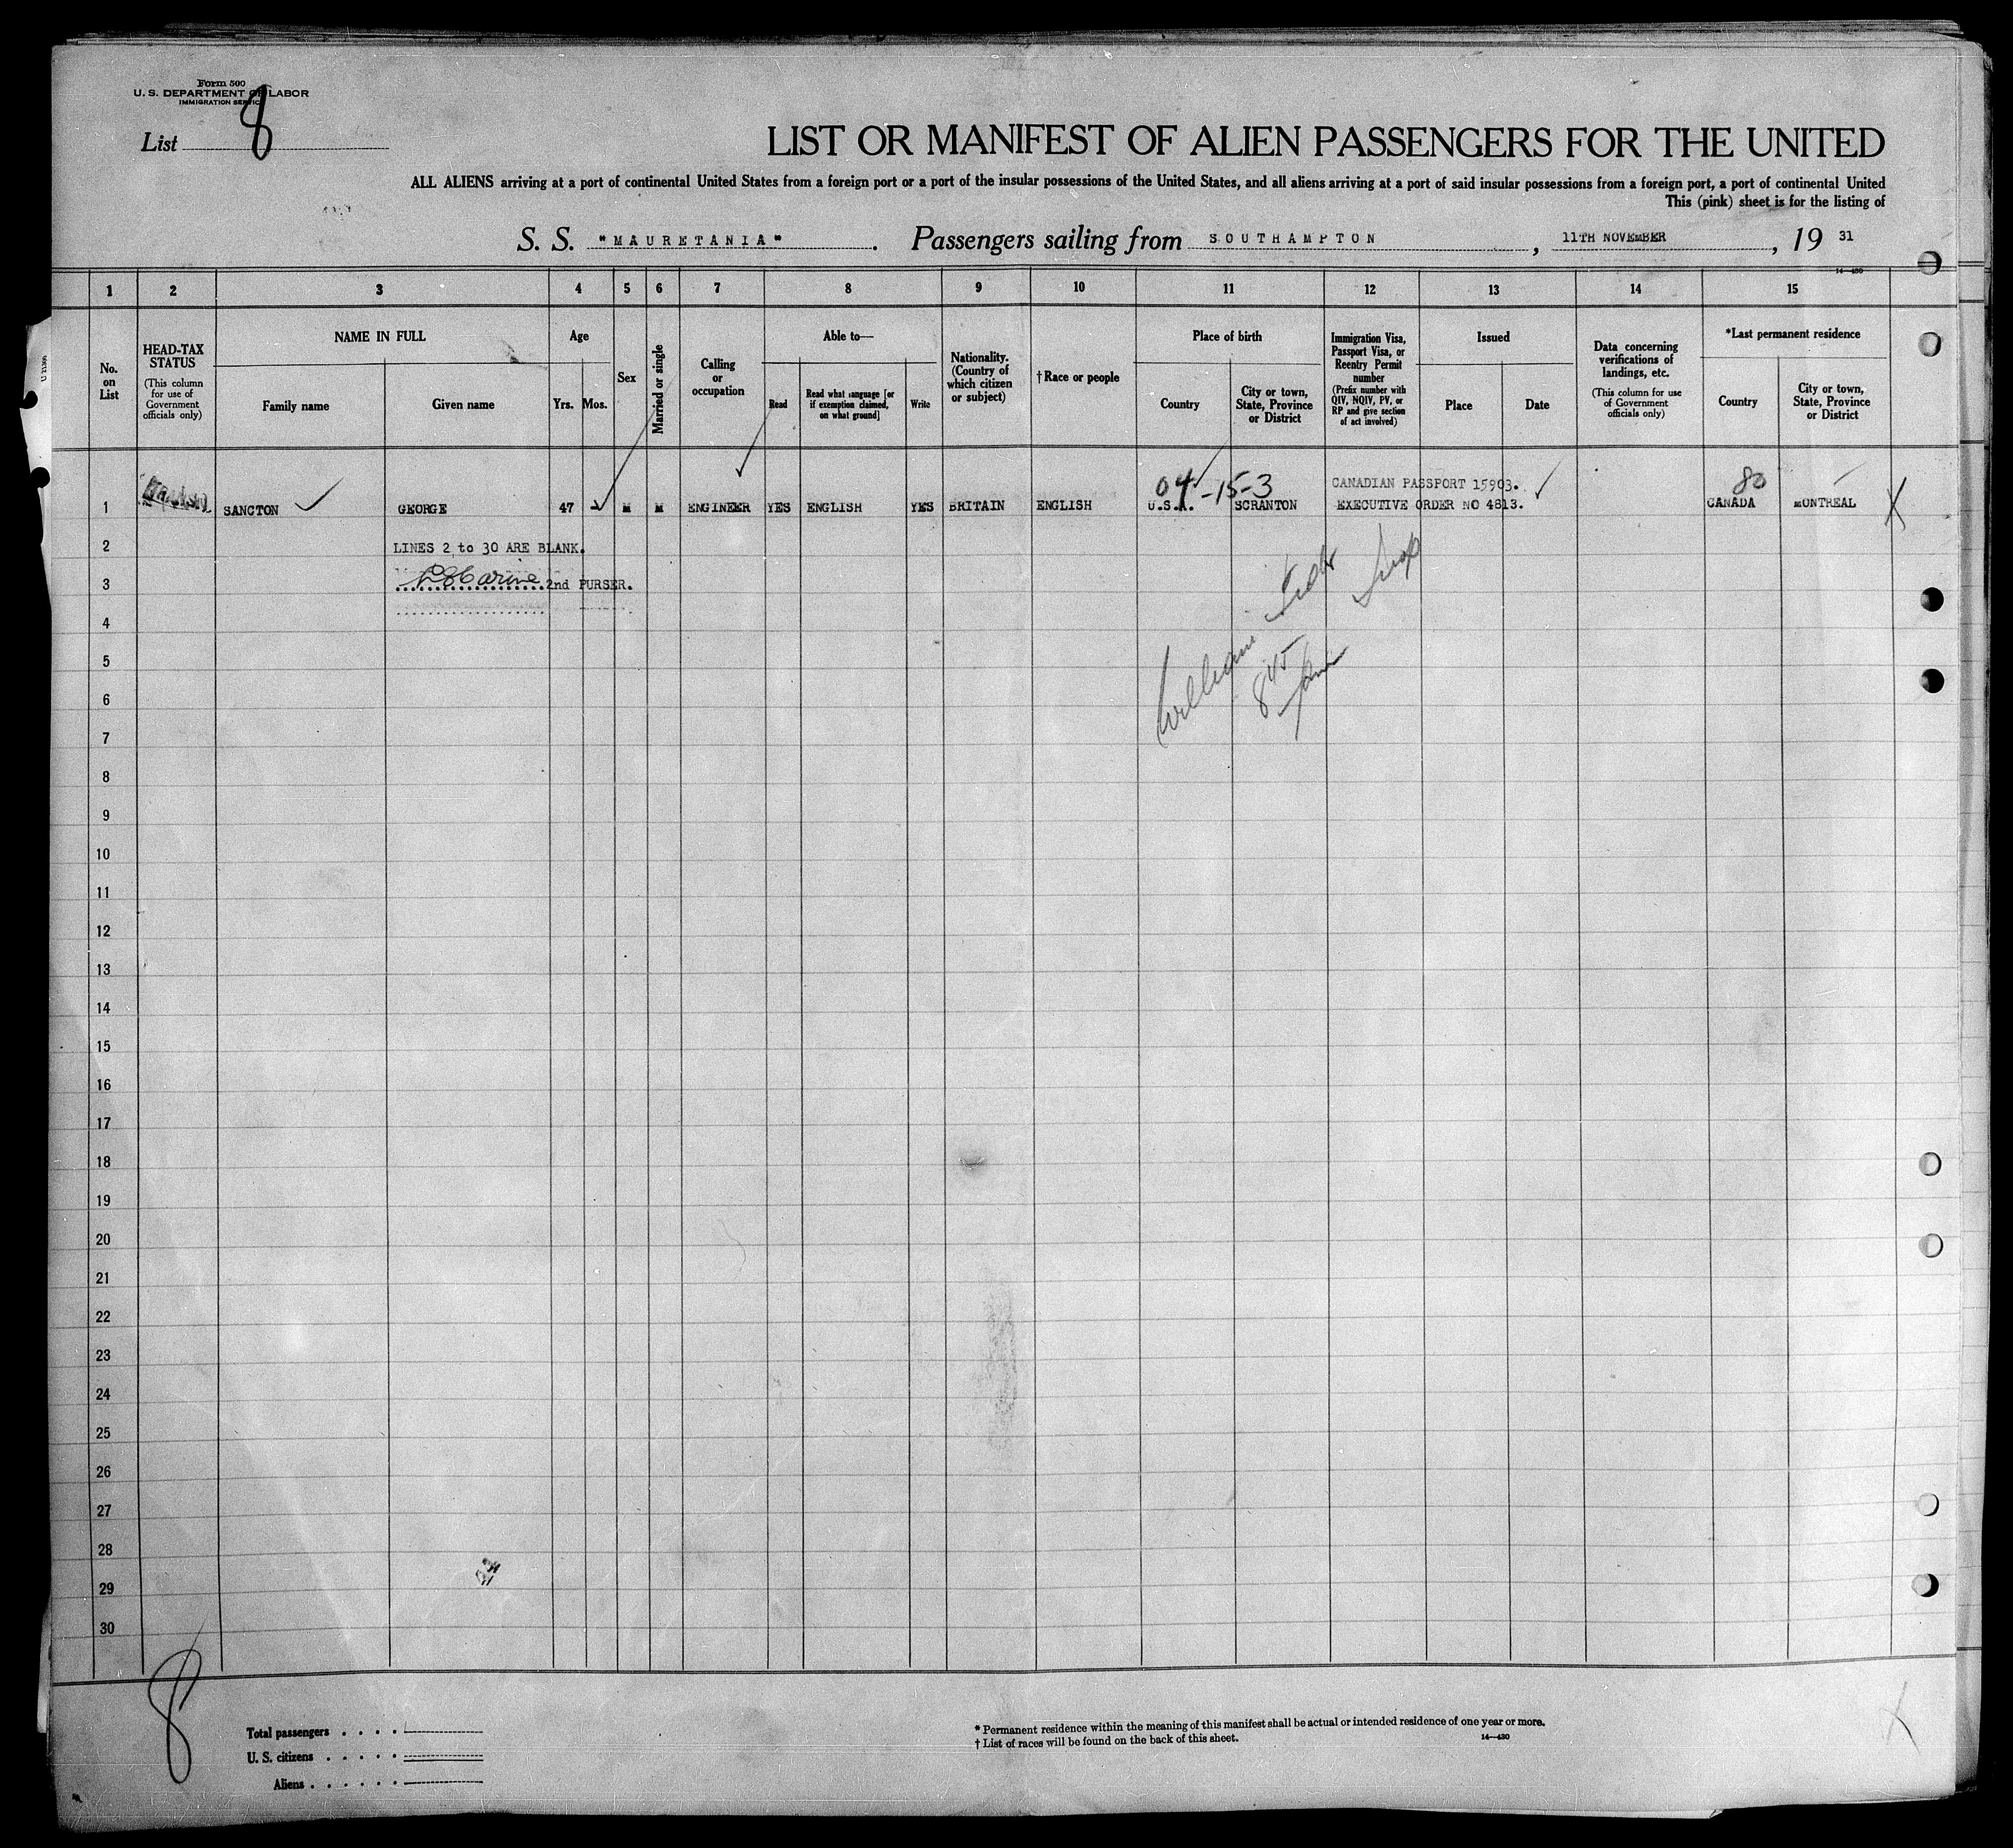 Form 500
U. S. DEPARTMENT OF LABOR
IMMIGRATION SERVICE
List 8
LIST OR MANIFEST OF ALIEN PASSENGERS FOR THE UNITED
ALL ALIENS arriving at a port of continental United States from a foreign port or a port of the insular possessions of the United States, and all aliens arriving at a port of said insular possessions from a foreign port, a port of continental United
This (pink) sheet is for the listing of
S. S. "MAURETANIA". Passengers sailing from SOUTHAMPTON, 11TH NOVEMBER, 19 31
14—430
1 2 3 4 5 6 7 8 9 10 11 12 13 14 15
No. on List
HEAD-TAX STATUS
(This column for use of Government officials only)
NAME IN FULL
Family name
Given name
Age
Yrs. Mos.
Sex
Married or single
Calling or occupation
Able to—
Read
Read what language [or if exemption claimed, on what ground]
Write
Nationality. (Country of which citizen or subject)
†Race or people
Place of birth
Country
City or town, State, Province or District
Immigration Visa, Passport Visa, or Reentry Permit number
(Prefix number with QIV, NQIV, PV, or RP and give section of act involved)
Issued
Place
Date
Data concerning verifications of landings, etc.
(This column for use of Government officials only)
*Last permanent residence
Country
City or town, State, Province or District
04-15-3 CANADIAN PASSPORT 15903. 80
1 SANCTON GEORGE 47 M M ENGINEER YES ENGLISH YES BRITAIN ENGLISH U.S.A. SCRANTON EXECUTIVE ORDER NO 4813. CANADA MONTREAL
2 LINES 2 to 30 ARE BLANK.
3 2nd PURSER.
4
5
William
845
6
7
8
9
10
11
12
13
14
15
16
17
18
19
20
21
22
23
24
25
26
27
28
29
30
8
Total passengers
U. S. citizens
Aliens
* Permanent residence within the meaning of this manifest shall be actual or intended residence of one year or more.
† List of races will be found on the back of this sheet.
14—430